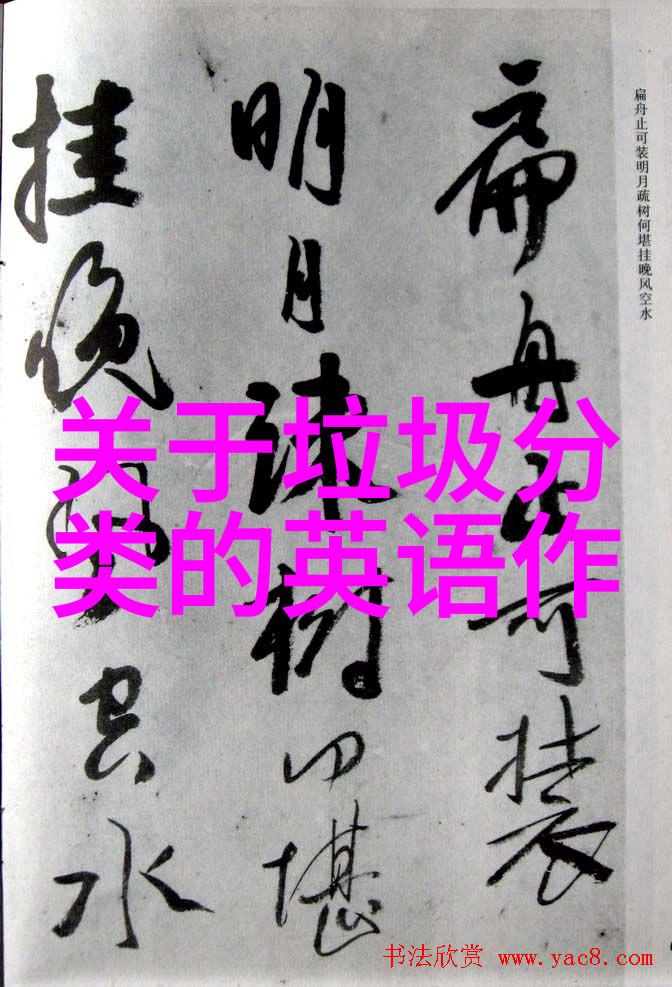 扁舟止可装
明月疏树何堪
挂晚风空水
扁舟止可装明月疏树何堪挂晚风空水
关于垃圾分
类的英语作
书法欣赏 www.yac8.com